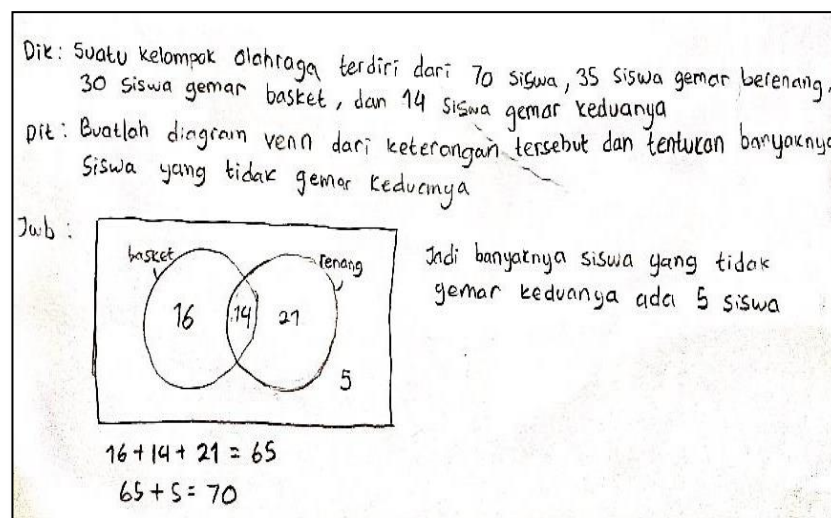 Dik : Suatu kelompok olahraga terdiri dari 70 siswa, 35 siswa gemar berenang,
30 siswa gemar basket, dan 14 siswa gemar keduanya
Dit : Buatlah diagram venn dari keterangan tersebut dan tentukan banyaknya
siswa yang tidak gemar keduanya
Jwb :
basket
renang
16
14
21
5
Jadi banyaknya siswa yang tidak
gemar keduanya ada 5 siswa
16 + 14 + 21 = 65
65 + 5 = 70